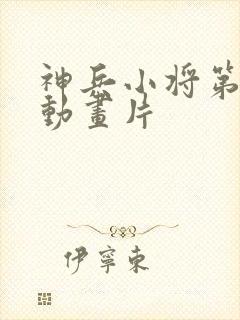 神兵小将第
動畫片
伊寧東